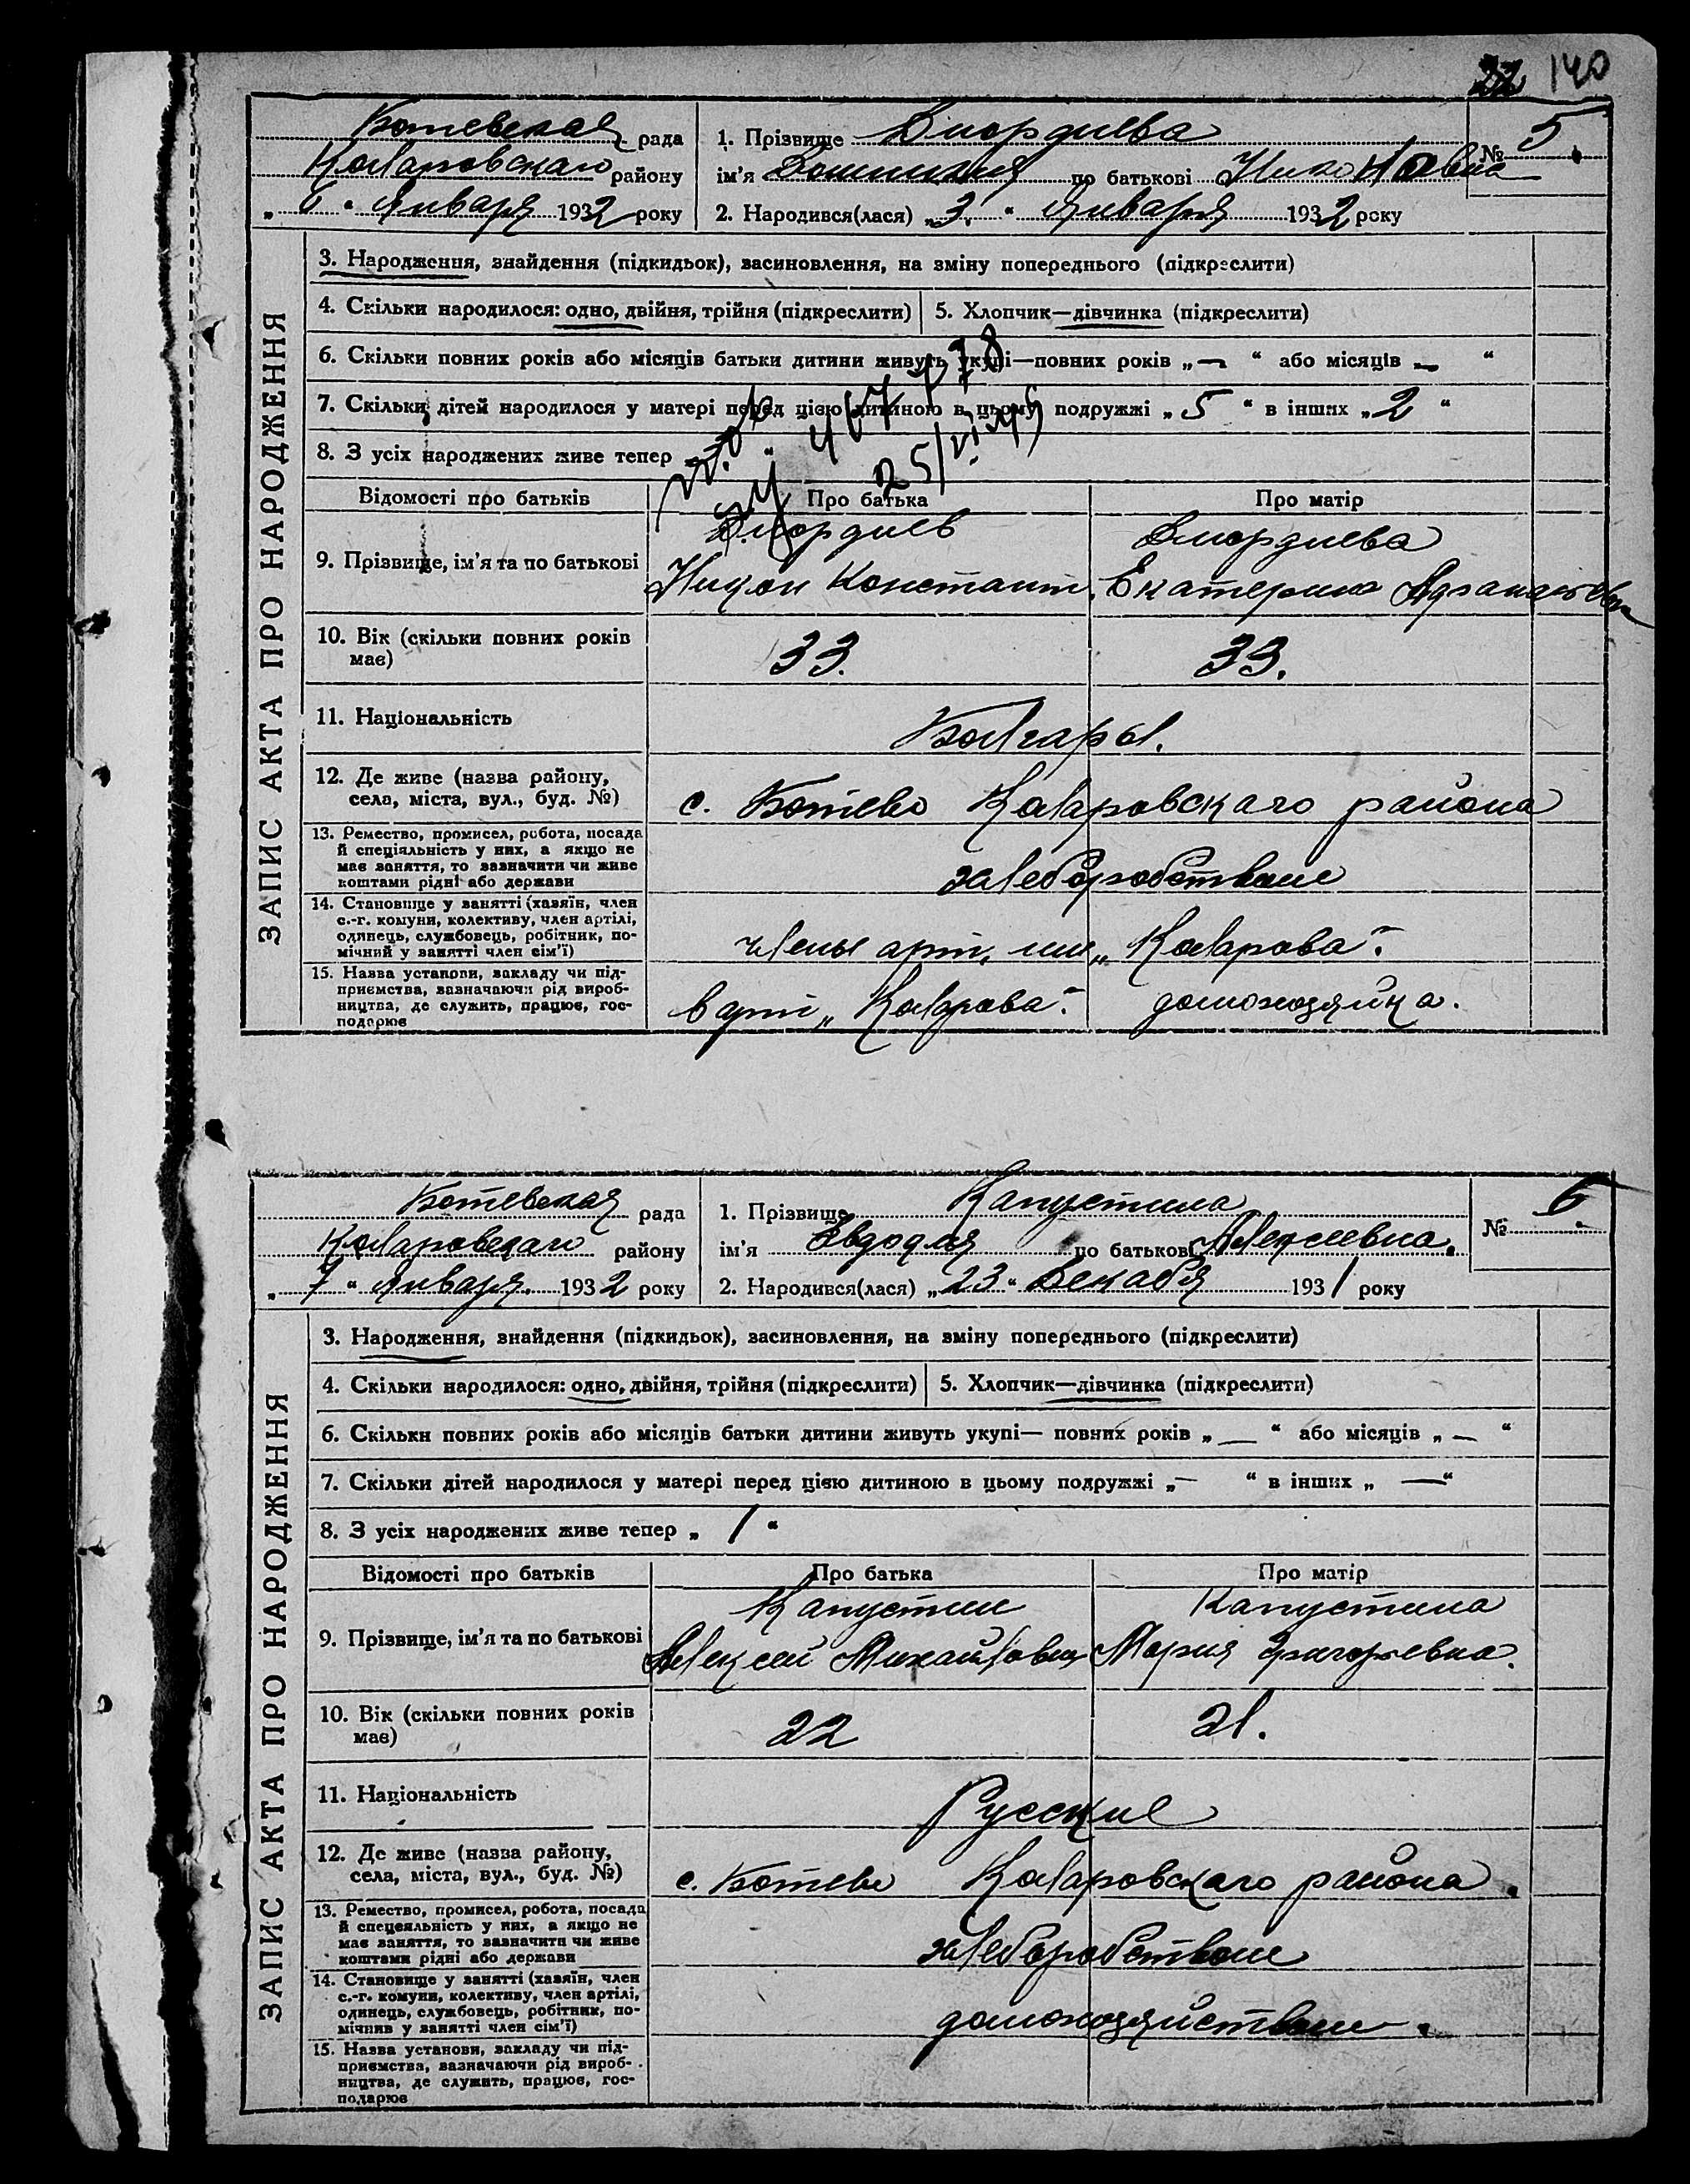 22 140
Ботевская рада
Коларовского району
„ 6 “ Января 1932 року
1. Прізвище Диордиева
ім'я Доминикия по батькові Николавна
2. Народився(лася) „ 3. “ Января 1932 року
№ 5
ЗАПИС АКТА ПРО НАРОДЖЕННЯ
3. Народження, знайдення (підкидьок), засиновлення, на зміну попереднього (підкреслити)
4. Скільки народилося: одно, двійня, трійня (підкреслити) 5. Хлопчик—дівчинка (підкреслити)
6. Скільки повних років або місяців батьки дитини живуть укупі—повних років „ — “ або місяців „ — “
7. Скільки дітей народилося у матері перед цією дитиною в цьому подружжі „ 5 “ в інших „ 2 “
8. З усіх народжених живе тепер
467778
Відомості про батьків Про батька Про матір
Диордиев Диордиева
9. Прізвище, ім'я та по батькові
Никон Констант. Екатерина
10. Вік (скільки повних років має) 33. 33.
11. Національність Болгары.
12. Де живе (назва району, села, міста, вул., буд. №) с. Ботево Коларовского района
13. Ремество, промисел, робота, посада
й спеціяльність у них, а якщо не
має заняття, то зазначити чи живе
коштами рідні або держави
хлеборобством
14. Становище у занятті (хазяїн, член
с.-г. комуни, колективу, член артілі,
одинець, службовець, робітник, по-
мічний у занятті член сім'ї)
члены арт. им „Коларова“.
15. Назва установи, закладу чи під-
приємства, зазначаючи рід вироб-
ництва, де служить, працює, гос-
подарює
в арт „Коларова“. домохозяйка.
Ботевская рада
Коларовского району
„ 7 “ Января. 1932 року
1. Прізвище Капустина
ім'я Евдокия по батькові Алексеевна.
2. Народився(лася) „ 23 “ Декабря 1931 року
№ 6
ЗАПИС АКТА ПРО НАРОДЖЕННЯ
3. Народження, знайдення (підкидьок), засиновлення, на зміну попереднього (підкреслити)
4. Скільки народилося: одно, двійня, трійня (підкреслити) 5. Хлопчик—дівчинка (підкреслити)
6. Скільки повних років або місяців батьки дитини живуть укупі— повних років „ — “ або місяців „ — “
7. Скільки дітей народилося у матері перед цією дитиною в цьому подружжі „ — “ в інших „ — “
8. З усіх народжених живе тепер „ 1 “
Відомості про батьків Про батька Про матір
Капустин Капустина
9. Прізвище, ім'я та по батькові
Алексей Михайлович Мария Григорьевна.
10. Вік (скільки повних років має) 22 21.
11. Національність Русские
12. Де живе (назва району, села, міста, вул., буд. №) с. Ботево Коларовского района.
13. Ремество, промисел, робота, посада
й спецеяльність у них, а якщо не
має заняття, то зазначити чи живе
коштами рідні або держави
хлеборобством
14. Становище у занятті (хазяїн, член
с.-г. комуни, колективу, член артілі,
одинець, службовець, робітник, по-
мічнив у занятті член сім'ї)
домохозяйством.
15. Назва установи, закладу чи під-
приємства, зазначаючи рід вироб-
ництва, де служить, працює, гос-
подарює